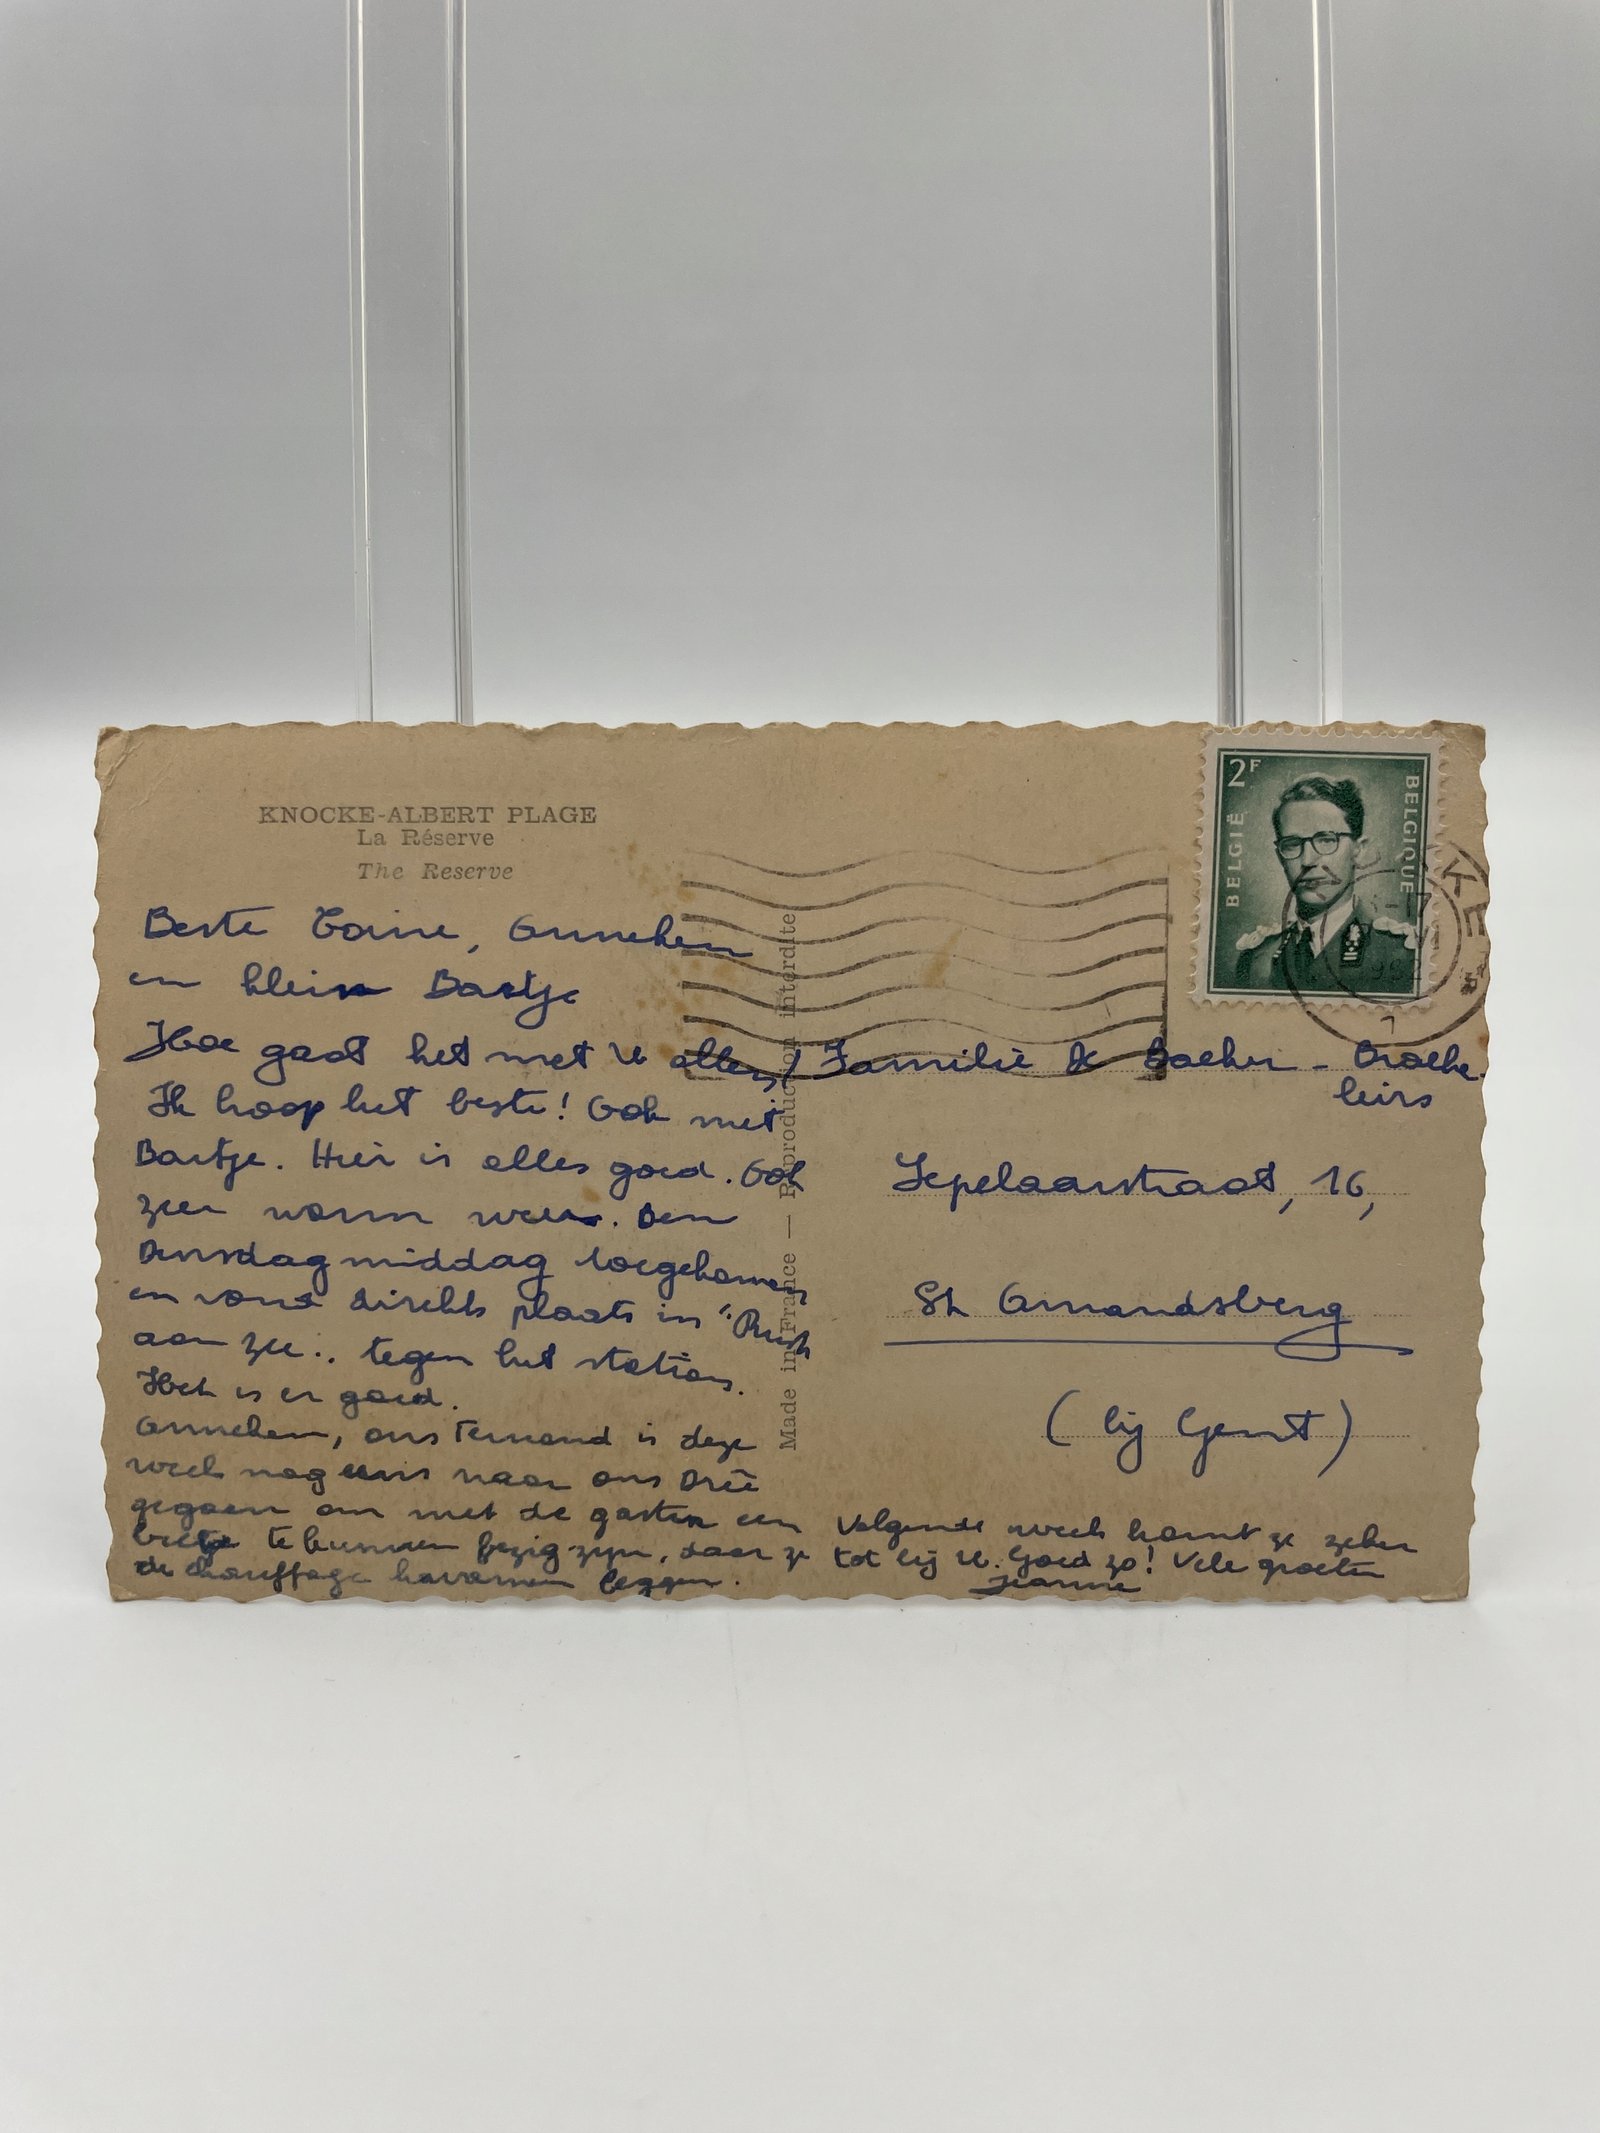 KNOCKE-ALBERT PLAGE
La Réserve
The Reserve
2F
BELGIË
BELGIQUE
KE
Made in France — Reproduction interdite
Beste Anneken
en klein Bartje
Hoe gaat het met U allen?
Ik hoop het beste! Ook met
Bartje. Hier is alles goed. Ook
zeer warm weer. Den
Dinsdagmiddag toegekomen
en vond direkt plaats in "Rust
aan zee". tegen het station.
Het is er goed.
Anneken, ons Fernand is deze
week nog eens naar ons Dréé
gegaan om met de gasten een
beetje te kunnen bezig zijn, daar ze
de chauffage kwamen leggen.
Volgende week komt ze zeker
tot bij U. Goed zo! Vele groeten
Jeanne
Familie De Backer - Braeke-
leirs
Sepelaarstraat, 16,
St Amandsberg
(bij Gent)